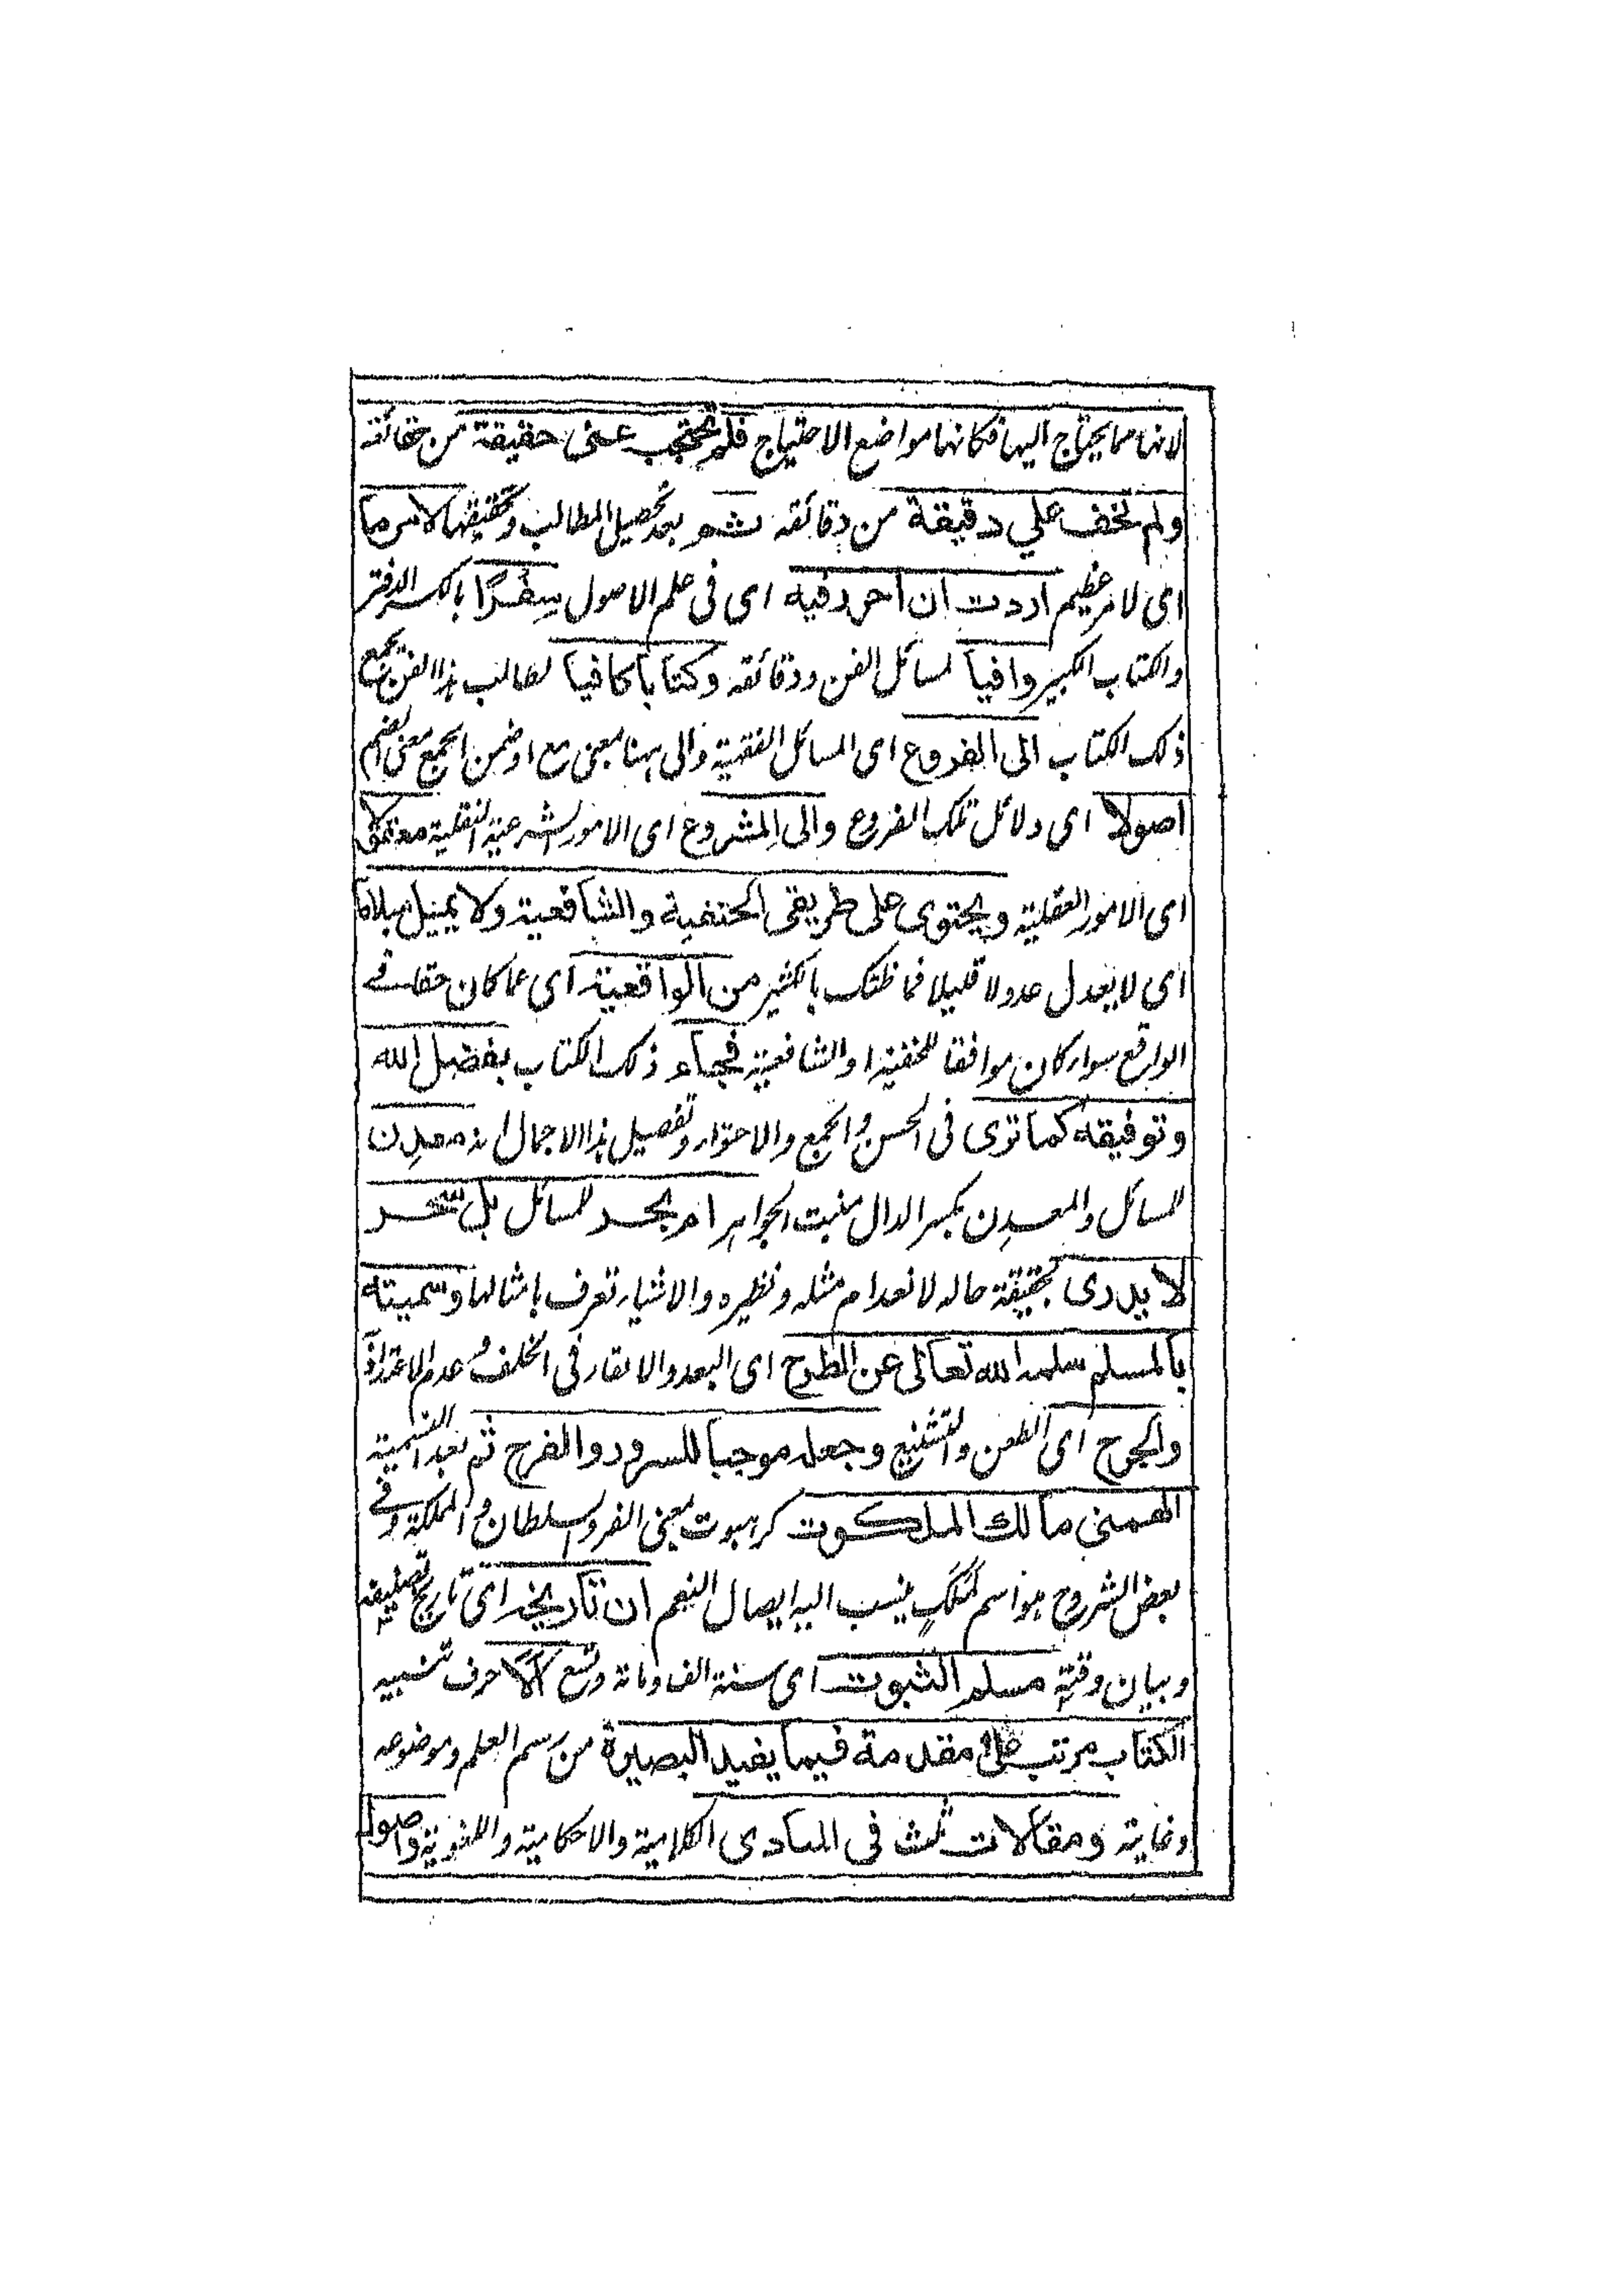 لانها مما يحتاج اليها فكانها مواضع الاحتياج فلم تحتجب عنى حقيقة من حقائقه
ولم تخف علي دقيقة من دقائقه ثم بعد تحصيل المطالب وتحقيقها لامر ما
اى لامر عظيم اردت ان احرر فيه اى فى علم الاصول سِفْرًا بالكسر الدفتر
والكتاب الكبير وافيا لمسائل الفن ودقائقه وكتابا كافيا لطالب هذا الفن يجمع
ذلك الكتاب الى الفروع اى المسائل الفقهية والى ههنا بمعنى مع او ضمن الجمع معنى الضم
اصولا اى دلائل تلك الفروع والى المشروع اى الامور الشرعية النقلية معقولا
اى الامور العقلية ويحتوى على طريقى الحنفية والشافعية ولا يميل ميلا ما
اى لا يعدل عدولا قليلا فما ظنك بالكثير من الواقعية اى عما كان حقا فى
الواقع سواء كان موافقا للحنفية او الشافعية فجاء ذلك الكتاب بفضل الله
وتوفيقه كما ترى فى الحسن والجمع والاحتواء وتفصيل هذا الاجمال انه معدِن
للمسائل والمعدِن بكسر الدال منبت الجواهر ام بحر للمسائل بل سحر
لا يدرى بحقيقة حاله لانعدام مثله ونظيره والاشياء تعرف بامثالها وسميته
بالمسلم سلمه الله تعالى عن الطرح اى البعد والالقاء فى الخلف
والجرح اى الطعن والتشنيع وجعله موجبا للسرور والفرح ثم بعد التسمية
الهمنى مالك الملكوت كرهبوت بمعنى السلطان والمملكة وفى
بعض الشروح هو اسم لملكٍ ينسب اليه ايصال النعم ان تاريخه اى تاريخ تصنيفه
وبيان وقته مسلم الثبوت اى سنة الف ومائة وتسع الا حرف تنبيه
الكتاب مرتب على مقدمة فيما يفيد البصيرة من رسم العلم وموضوعه
وغايته ومقالات ثلث فى المبادى الكلامية والاحكامية واللغوية واصول